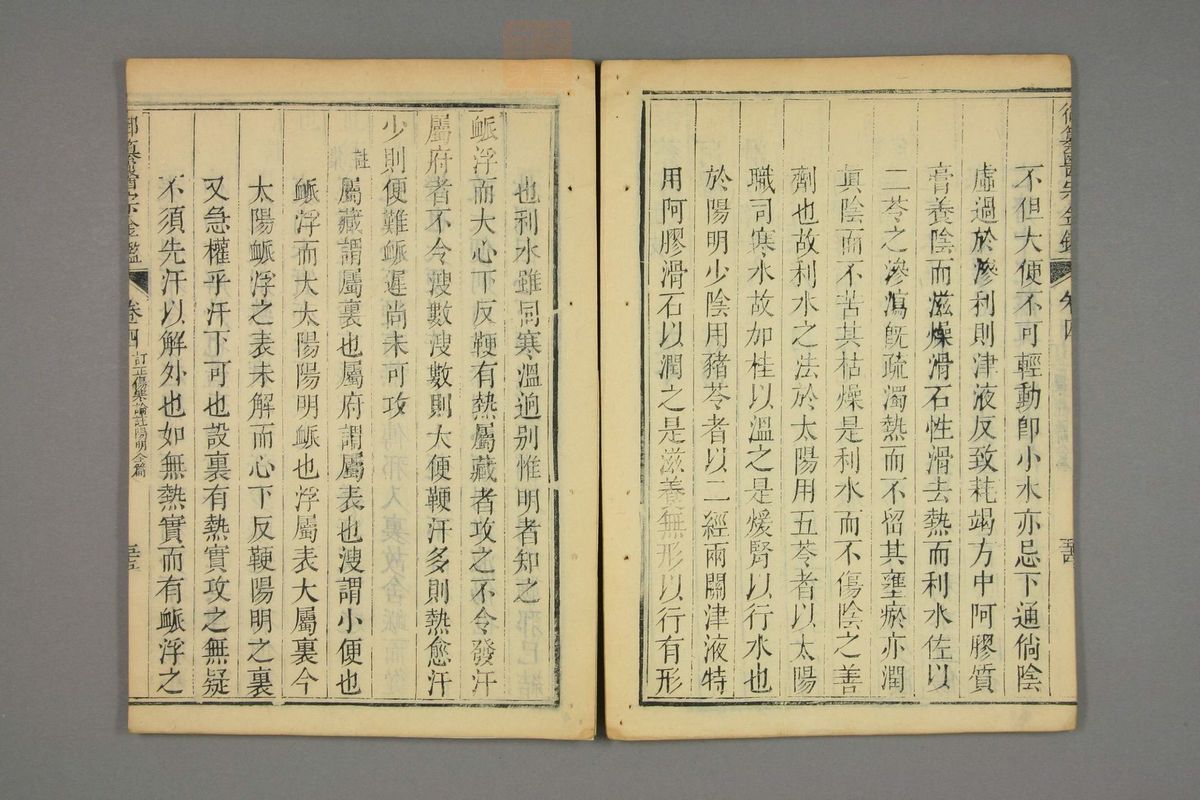 御纂醫宗金鑑
卷四
不但大便不可輕動卽小水亦忌下通倘陰
虛過於滲利則津液反致耗竭方中阿膠質
膏養陰而滋燥滑石性滑去熱而利水佐以
二苓之滲瀉旣疏濁熱而不留其壅瘀亦潤
眞陰而不苦其枯燥是利水而不傷陰之善
劑也故利水之法於太陽用五苓者以太陽
職司寒水故加桂以溫之是煖腎以行水也
於陽明少陰用豬苓者以二經兩關津液特
用阿膠滑石以潤之是滋養無形以行有形
也利水雖同寒溫逈別惟明者知之
衇浮而大心下反鞕有熱屬藏者攻之不令發汗
屬府者不令溲數溲數則大便鞕汗多則熱愈汗
少則便難衇遲尚未可攻
註屬藏謂屬裏也屬府謂屬表也溲謂小便也
衇浮而大太陽陽明衇也浮屬表大屬裏今
太陽衇浮之表未解而心下反鞕陽明之裏
又急權乎汗下可也設裏有熱實攻之無疑
不須先汗以解外也如無熱實而有衇浮之
御纂醫宗金鑑
卷四
訂正傷寒論註陽明全篇